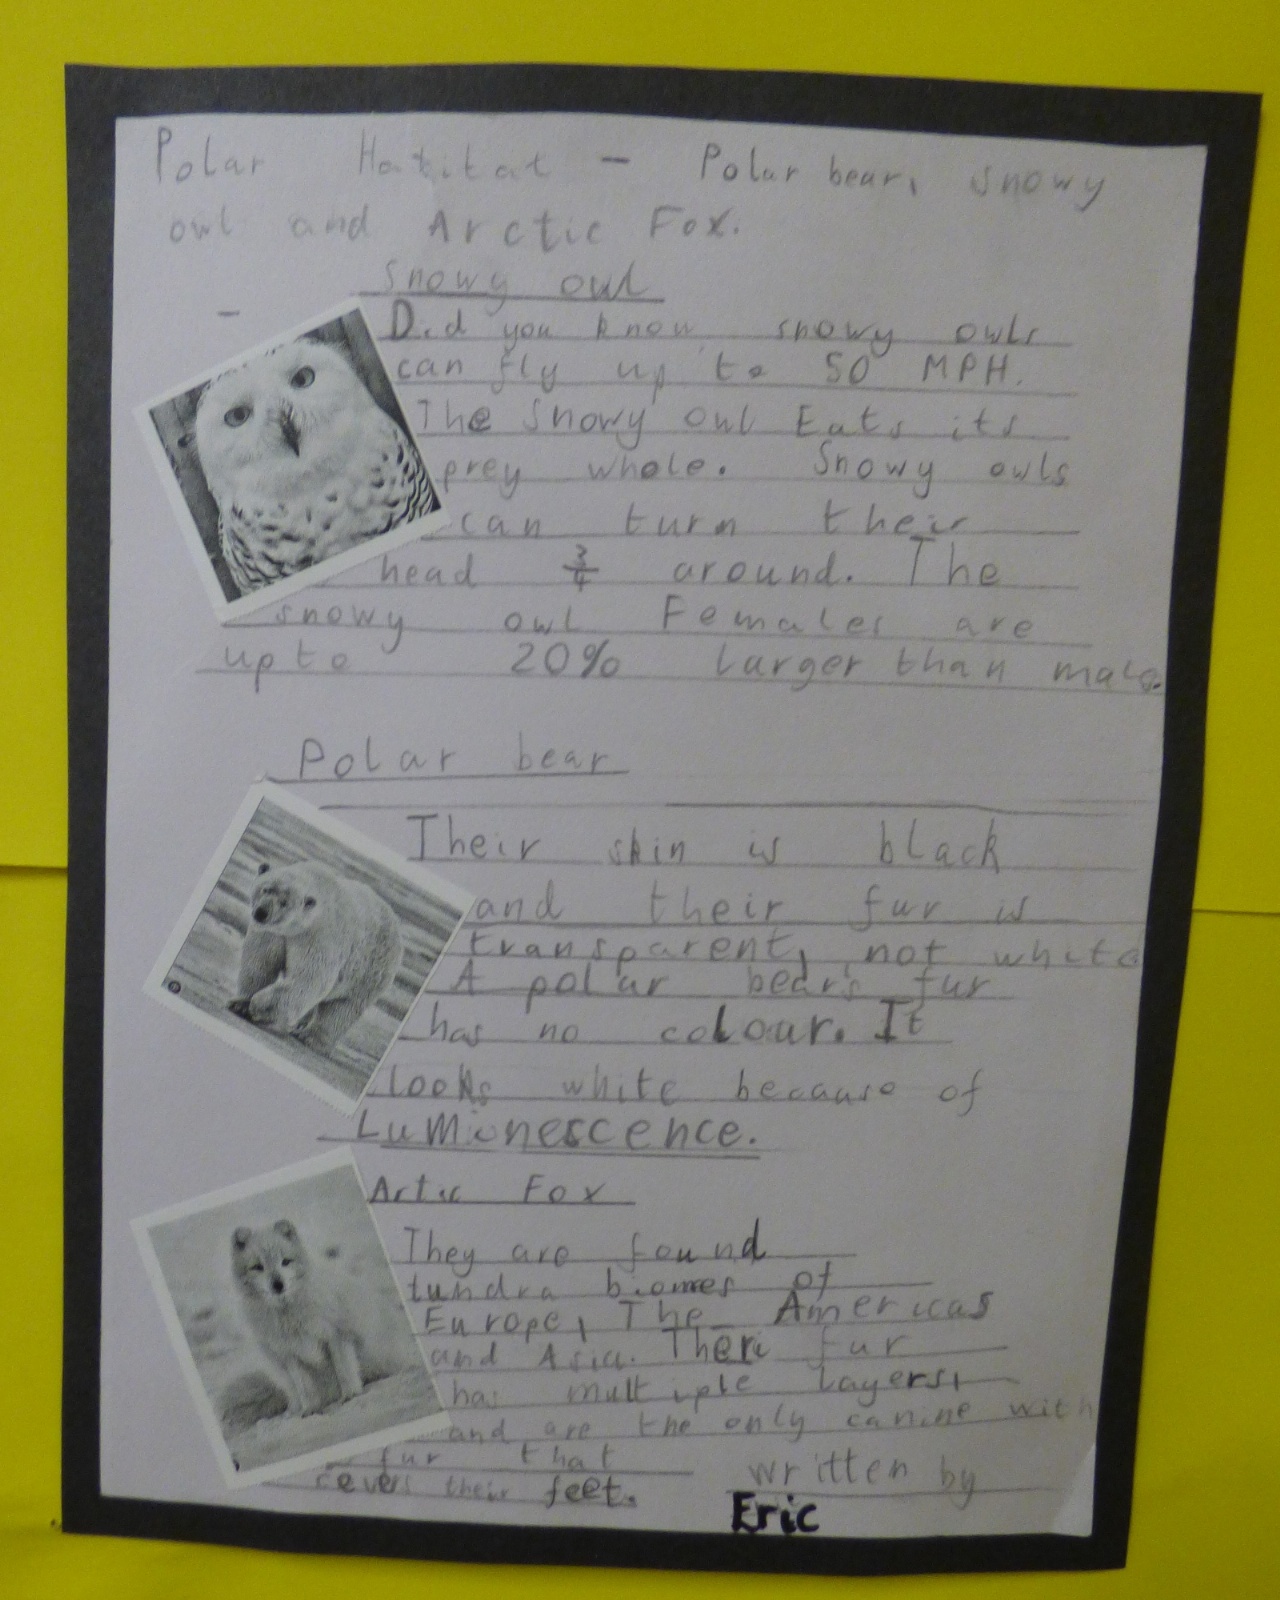 Polar Hatitat - Polar bear, snowy
owl and Arctic Fox.
Snowy owl
-
Did you know snowy owls
can fly up to 50 MPH.
The Snowy owl Eats its
prey whole. Snowy owls
can turn their
head 3/4 around. The
snowy owl Females are
up to 20% larger than male.
Polar bear
Their skin is black
and their fur is
transparent, not white
A polar bear's fur
has no colour. It
looks white because of
Luminescence.
Artic Fox
They are found
tundra biomes of
Europe, The Americas
and Asia. Their fur
has multiple layers,
and are the only canine with
fur that
covers their feet.
written by
Eric